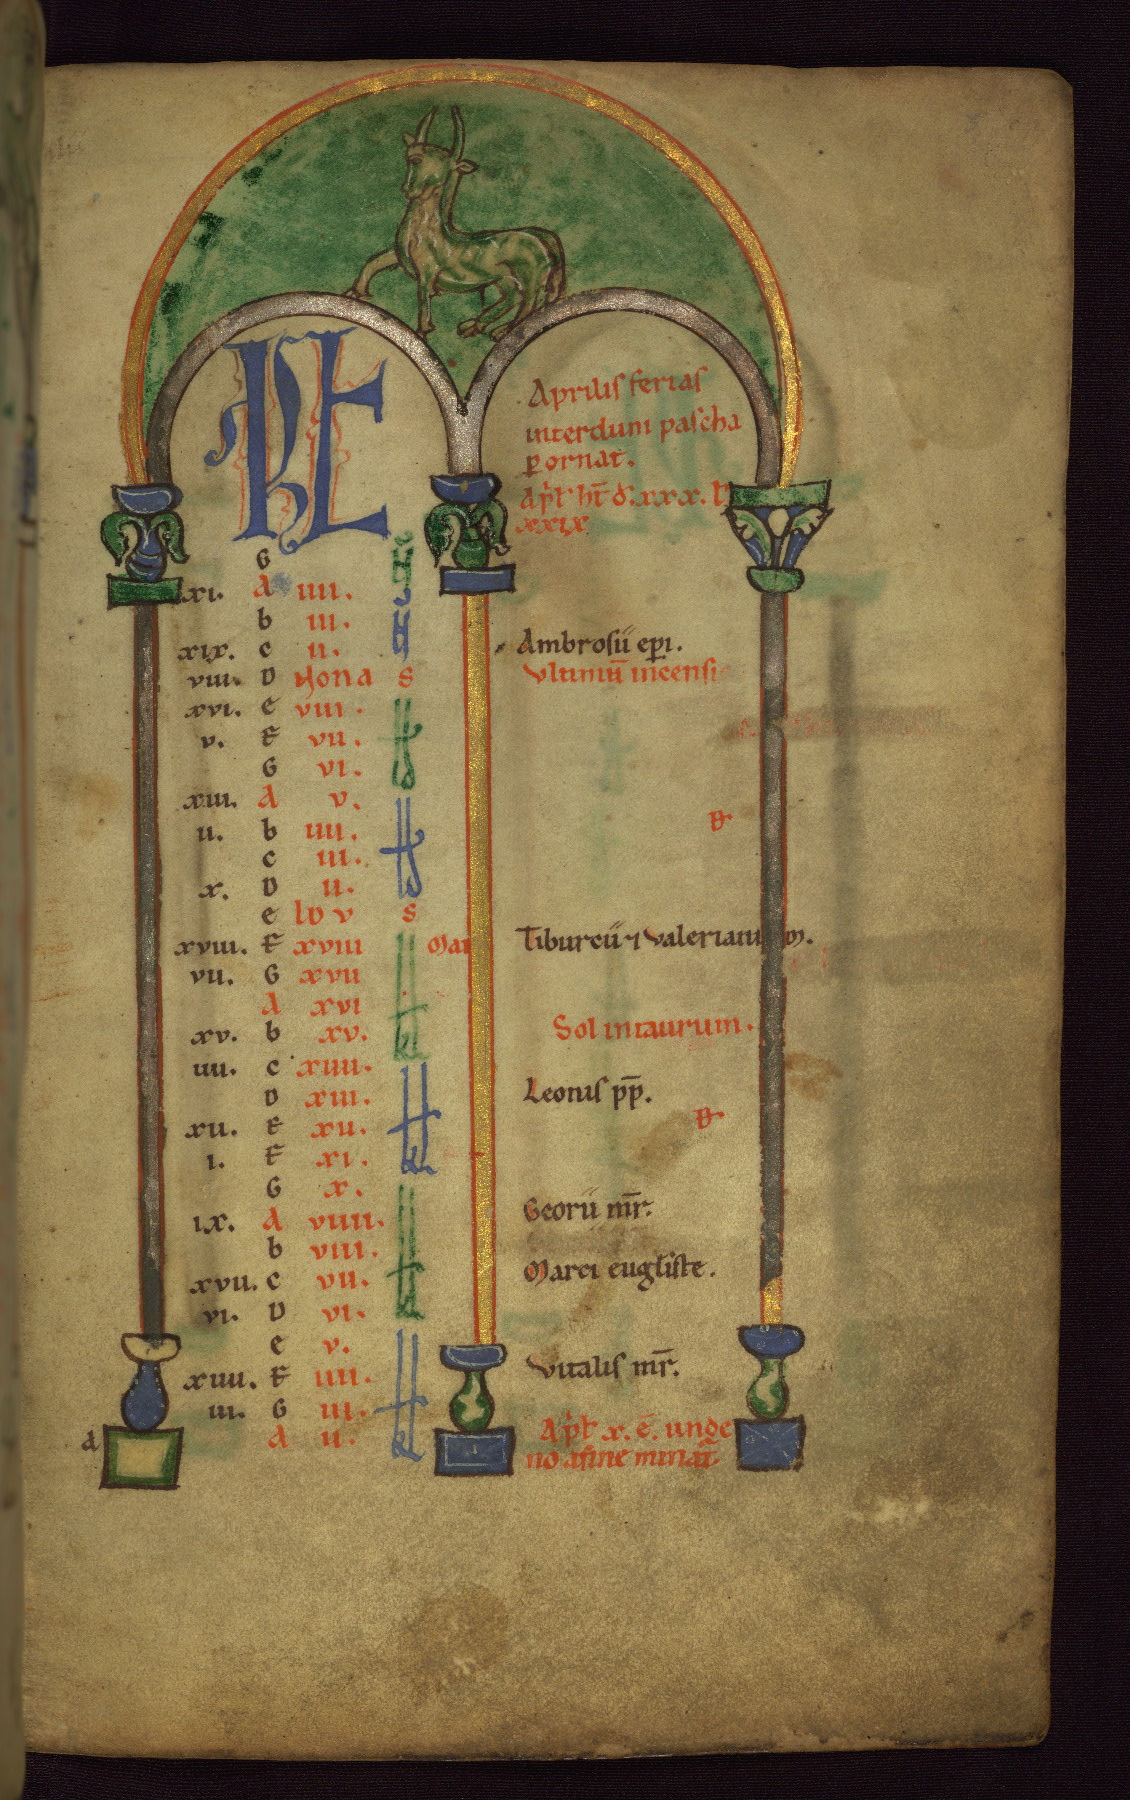 KL
Aprilis ferias
interdum pascha
ꝑornat.
Apł ht̄ d. xxx. l
xxix
G
xi. A iiii.
b iii.
xix. c ii. Ambrosii ep̄i.
viii. D Nona s Ultimū incensi
xvi. e viii.
v. F vii.
G vi.
xiii. A v.
ii. b iiii.
c iii.
x. D ii.
e IDV s
xviii. F xviii Mai Tiburcii ⁊ Valeriani m.
vii. G xvii
A xvi
xv. b xv. Sol in taurum.
iiii. c xiiii.
D xiii. Leonis pp̄.
xii. E xii.
i. F xi.
G x.
ix. A viiii. Georii mr̄.
b viii.
xvii. c vii. Marci eugliste.
vi. D vi.
e v.
xiiii. F iiii. Vitalis mr̄.
iii. G iii.
d A ii. Apł x. ē. unge
no a fine minat̄